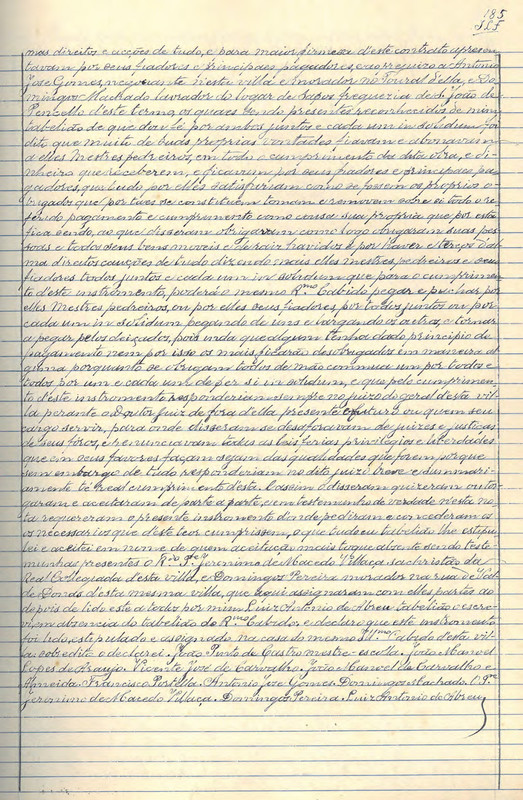 185
mas direitos e acções de tudo, e para maior firmeza d'este contrato apresen
tavam por seus fiadores e principaes pagadores, e a Antonio
Jose Gomes, negociante n'esta villa e morador no Toural d'ella, e Do
mingos Machado lavrador do logar de freguezia de S. João de
Pencello d'este termo os quaes sendo presentes reconhecidos de mim
tabelião de que dou fé por ambos juntos e cada um in solidum foi
dito que muito de suas proprias vontades ficavam e abonavam
a elles Mestres pedreiros, em todo o cumprimento da dita obra, e di
nheiro que receberem, e ficavam por seus fiadores e principaes pa
gadores, que tudo por elles satisfariam como se fossem os proprios o
brigados que por taes se constituem tomam e removem sobre si todo o re
ferido pagamento e cumprimento como causa sua propria que por esta
fica sendo, ao que disseram obrigavam como logo obrigaram suas pes
soas e todos seus bens moveis e de raiz havidos e por haver e terços d'al
ma direitos e acções de tudo dizendo mais elles mestres pedreiros e seus
fiadores todos juntos e cada um in solidum que para o cumprimen
to d'este instromento, poderá o mesmo Rmo Cabido pegar e puchar por
elles Mestres pedreiros, ou por elles seus fiadores, por todos juntos ou por
cada um in solidum pegando de uns e largando os outros, e tornar
a pegar pelos deixados, pois inda que algum tenha dado principio de
pagamento nem por isso os mais ficarão desobrigados em maneira al
guma porquanto se obrigam todos de mão commua um por todos e
todos por um e cada um de per si in solidum, e que pelo cumprimen
to d'este instromento responderiam sempre no juizo do geral d'esta vi
lla perante o Doutor Juiz de fóra d'ella presente e futuro ou quem seu
cargo servir, para onde disseram se desaforavam de juizes e justiças
de seus foros, e renunciavam todas as leis ferias privilegios e liberdades
que em seus favores façam sejam das qualidades que forem porque
sem embargo de tudo responderiam no dito juizo breve e summari
amente té real cumprimento d'esta. E assim o disseram quizeram ou to
garam e aceitaram de parte a parte, e em testemunho de verdade n'esta no
ta requereram o presente instromento d'onde pediram e concederam os
os necessarios que d'este theor cumprissem, o que tudo eu tabelião lhe estipu
lei e aceitei em nome de quem aceitação mais toque absente sendo teste
munhas presentes o Rdo Pe Jeronimo de Macedo Villaça sachristão da
Real Collegiada d'esta villa, e Domingos Pereira morador na rua de Val
de Donas d'esta mesma villa, que aqui assignaram com elles partes ao
depois de lido este a todos por mim Luiz Antonio de Abreu tabelião o escre
vi em absencia do tabelião do Rmo Cabido, e declaro que este instromento
foi lido, estipulado e assignado na casa do mesmo Illmo Cabido d'esta vil
la sobredito o declarei. João Pinto de Castro mestre-escolla. João Manoel
Lopes de Araujo. Vicente José de Carvalho. João Manoel de Carvalho e
Almeida. Francisco Portella. Antonio Jose Gomes. Domingos Machado. O Pe
Jeronimo de Macedo Villaça. Domingos Pereira. Luiz Antonio de Abreu